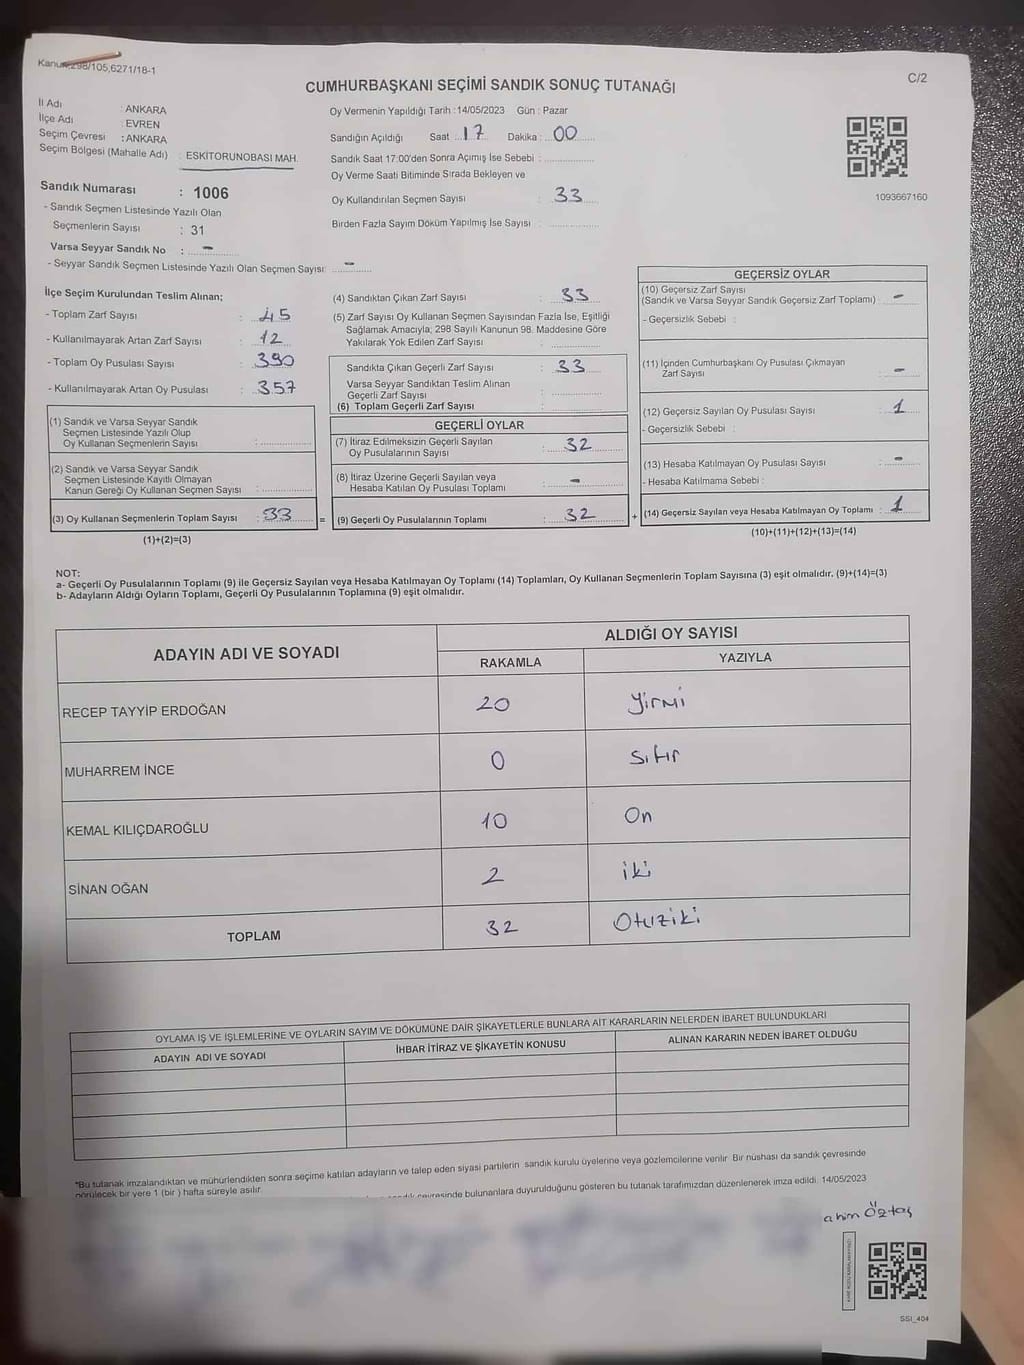 Kanun,298/105,6271/18-1
C/2
CUMHURBAŞKANI SEÇİMİ SANDIK SONUÇ TUTANAĞI
İl Adı : ANKARA
İlçe Adı : EVREN
Seçim Çevresi : ANKARA
Seçim Bölgesi (Mahalle Adı) : ESKİTORUNOBASI MAH.
Sandık Numarası : 1006
- Sandık Seçmen Listesinde Yazılı Olan
Seçmenlerin Sayısı : 31
Varsa Seyyar Sandık No : -
- Seyyar Sandık Seçmen Listesinde Yazılı Olan Seçmen Sayısı: -
Oy Vermenin Yapıldığı Tarih :14/05/2023 Gün : Pazar
Sandığın Açıldığı Saat : 17 Dakika : 00
Sandık Saat 17:00'den Sonra Açımış İse Sebebi :
Oy Verme Saati Bitiminde Sırada Bekleyen ve
Oy Kullandırılan Seçmen Sayısı : 33
Birden Fazla Sayım Döküm Yapılmış İse Sayısı :
1093667160
İlçe Seçim Kurulundan Teslim Alınan;
- Toplam Zarf Sayısı : 45
- Kullanılmayarak Artan Zarf Sayısı : 12
- Toplam Oy Pusulası Sayısı : 390
- Kullanılmayarak Artan Oy Pusulası : 357
(1) Sandık ve Varsa Seyyar Sandık
Seçmen Listesinde Yazılı Olup
Oy Kullanan Seçmenlerin Sayısı :
(2) Sandık ve Varsa Seyyar Sandık
Seçmen Listesinde Kayıtlı Olmayan
Kanun Gereği Oy Kullanan Seçmen Sayısı :
(3) Oy Kullanan Seçmenlerin Toplam Sayısı : 33
(1)+(2)=(3)
(4) Sandıktan Çıkan Zarf Sayısı : 33
(5) Zarf Sayısı Oy Kullanan Seçmen Sayısından Fazla İse, Eşitliği
Sağlamak Amacıyla; 298 Sayılı Kanunun 98. Maddesine Göre
Yakılarak Yok Edilen Zarf Sayısı :
Sandıkta Çıkan Geçerli Zarf Sayısı : 33
Varsa Seyyar Sandıktan Teslim Alınan
Geçerli Zarf Sayısı :
(6) Toplam Geçerli Zarf Sayısı :
GEÇERLİ OYLAR
(7) İtiraz Edilmeksizin Geçerli Sayılan
Oy Pusulalarının Sayısı : 32
(8) İtiraz Üzerine Geçerli Sayılan veya
Hesaba Katılan Oy Pusulası Toplamı : -
= (9) Geçerli Oy Pusulalarının Toplamı : 32
GEÇERSİZ OYLAR
(10) Geçersiz Zarf Sayısı
(Sandık ve Varsa Seyyar Sandık Geçersiz Zarf Toplamı) : -
- Geçersizlik Sebebi :
(11) İçinden Cumhurbaşkanı Oy Pusulası Çıkmayan
Zarf Sayısı : -
(12) Geçersiz Sayılan Oy Pusulası Sayısı : 1
- Geçersizlik Sebebi :
(13) Hesaba Katılmayan Oy Pusulası Sayısı : -
- Hesaba Katılmama Sebebi :
+ (14) Geçersiz Sayılan veya Hesaba Katılmayan Oy Toplamı : 1
(10)+(11)+(12)+(13)=(14)
NOT:
a- Geçerli Oy Pusulalarının Toplamı (9) ile Geçersiz Sayılan veya Hesaba Katılmayan Oy Toplamı (14) Toplamları, Oy Kullanan Seçmenlerin Toplam Sayısına (3) eşit olmalıdır. (9)+(14)=(3)
b- Adayların Aldığı Oyların Toplamı, Geçerli Oy Pusulalarının Toplamına (9) eşit olmalıdır.
ADAYIN ADI VE SOYADI
ALDIĞI OY SAYISI
RAKAMLA YAZIYLA
RECEP TAYYİP ERDOĞAN 20 yirmi
MUHARREM İNCE 0 sıfır
KEMAL KILIÇDAROĞLU 10 On
SİNAN OĞAN 2 iki
TOPLAM 32 Otuziki
OYLAMA İŞ VE İŞLEMLERİNE VE OYLARIN SAYIM VE DÖKÜMÜNE DAİR ŞİKAYETLERLE BUNLARA AİT KARARLARIN NELERDEN İBARET BULUNDUKLARI
ADAYIN ADI VE SOYADI İHBAR İTİRAZ VE ŞİKAYETİN KONUSU ALINAN KARARIN NEDEN İBARET OLDUĞU
*Bu tutanak imzalandıktan ve mühürlendikten sonra seçime katılan adayların ve talep eden siyasi partilerin sandık kurulu üyelerine veya gözlemcilerine verilir. Bir nüshası da sandık çevresinde
görülecek bir yere 1 (bir ) hafta süreyle asılır.
sandık çevresinde bulunanlara duyurulduğunu gösteren bu tutanak tarafımızdan düzenlenerek imza edildi. 14/05/2023
ahim Öztaş
SSI_404